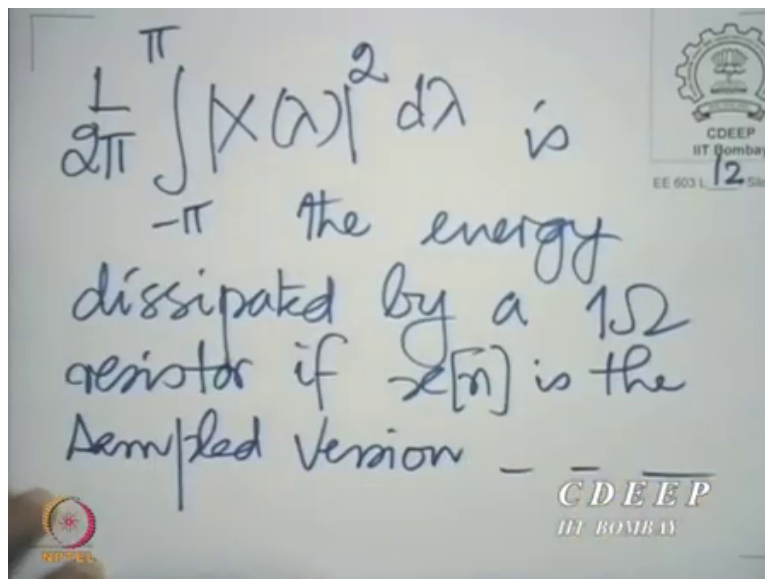 1/2π ∫_{-π}^{π} |X(λ)|² dλ is
the energy
dissipated by a 1Ω
resistor if x[n] is the
Sampled Version _ _ _
CDEEP
IIT Bombay
EE 603 L 12 Sli
CDEEP
IIT BOMBAY
NPTEL